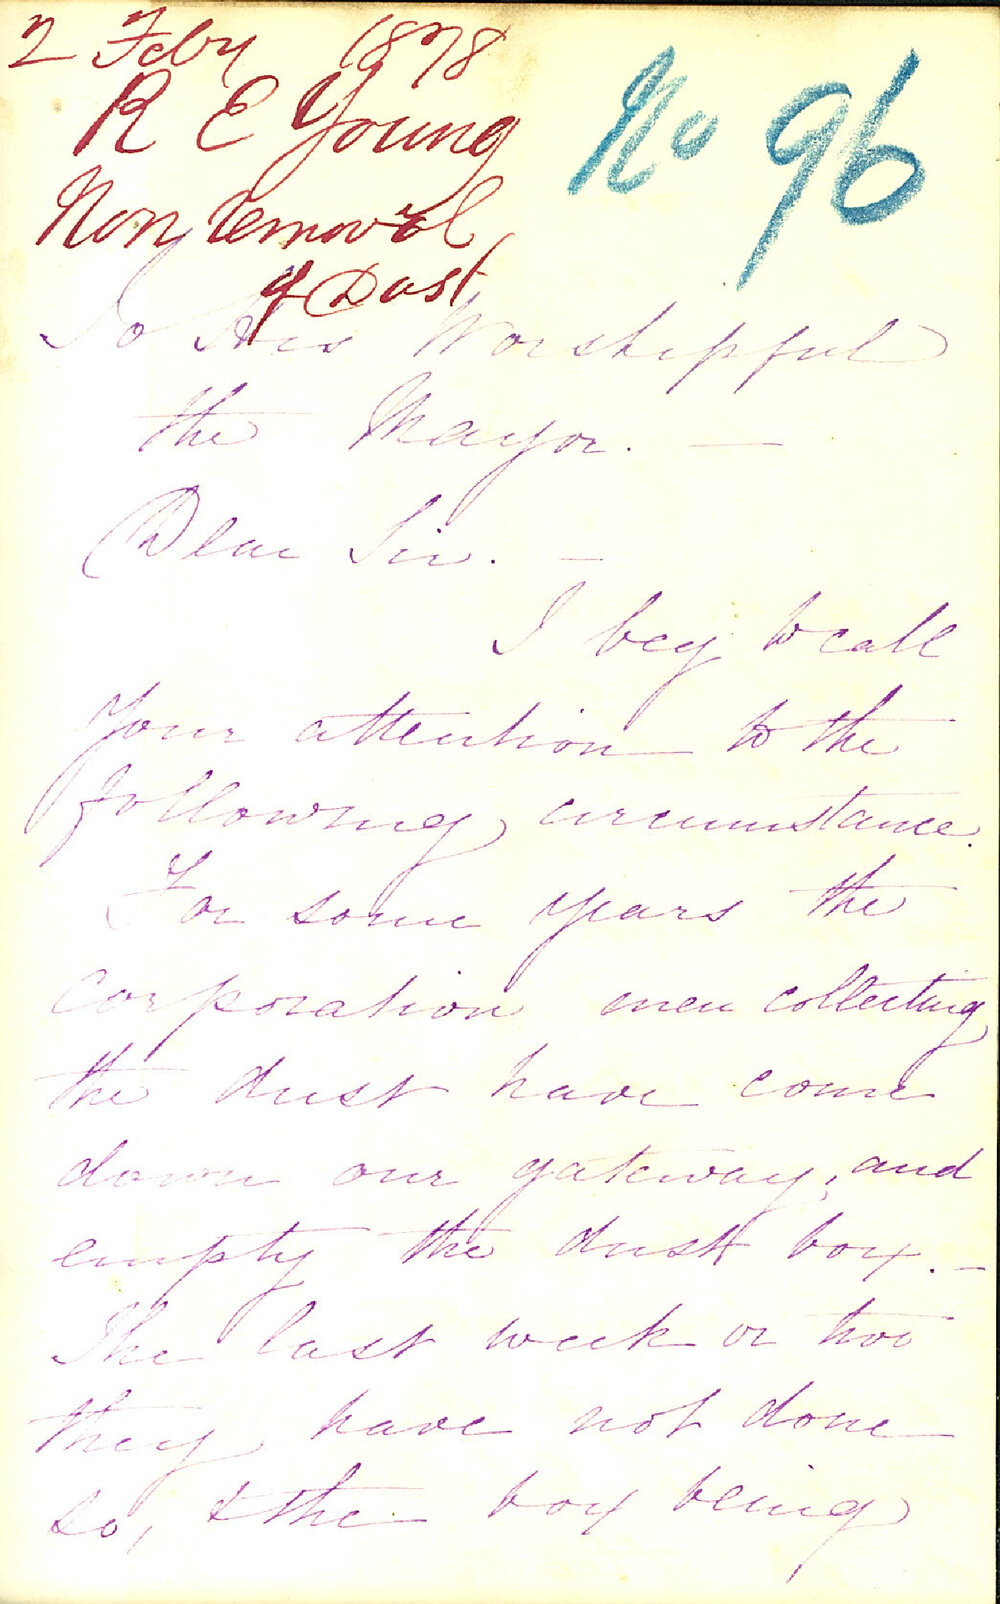 2 Feby 1878
R E Young
Non removal
of Dust
No 96
To His Worshipful
the Mayor. —
Dear Sir. —
I beg to call
your attention to the
following circumstance.
For some years the
corporation men collecting
the dust have come
down our gateway, and
empty the dust box. —
The last week or two
they have not done
so, & the box being